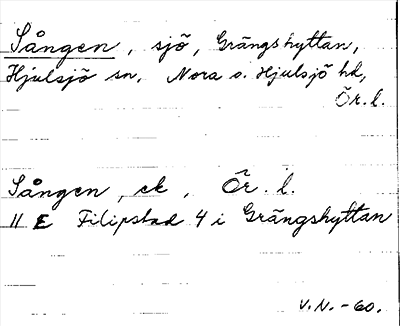 Sången, sjö, Grängshyttan,
Hjulsjö sn, Nora o. Hjulsjö hd,
Ör. l.
Sången, ek, Ör. l.
11 E Filipstad 4 i Grängshyttan
V.N. -60.